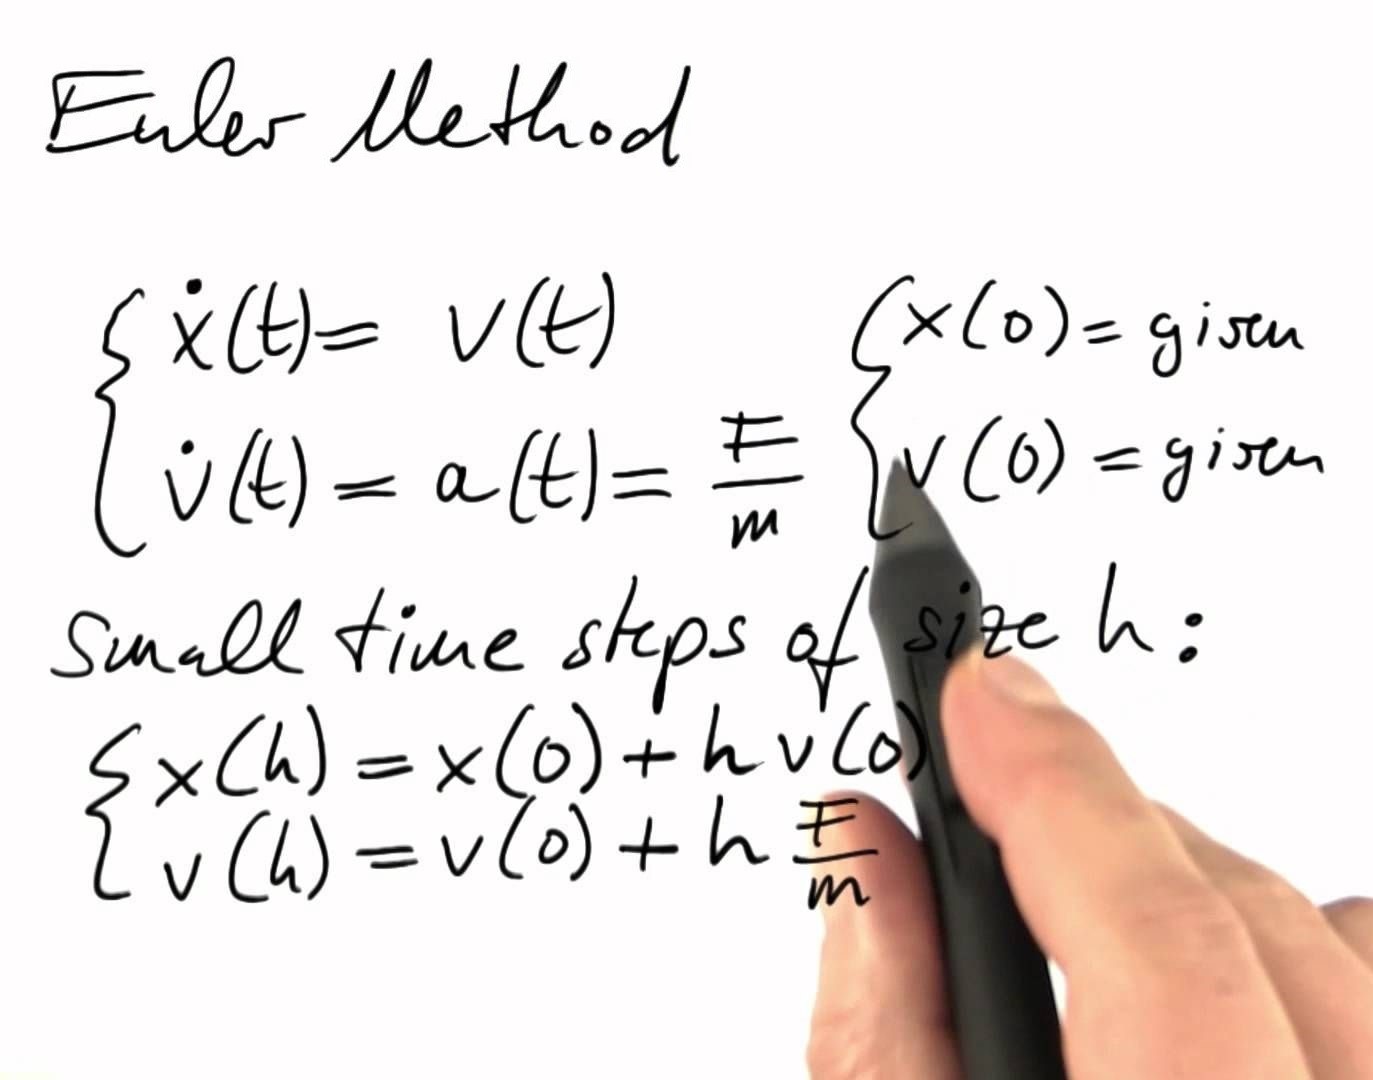 Euler Method
ẋ(t) = v(t)
v̇(t) = a(t) = F/m
x(0) = given
v(0) = given
Small time steps of size h:
x(h) = x(0) + h v(0)
v(h) = v(0) + h F/m